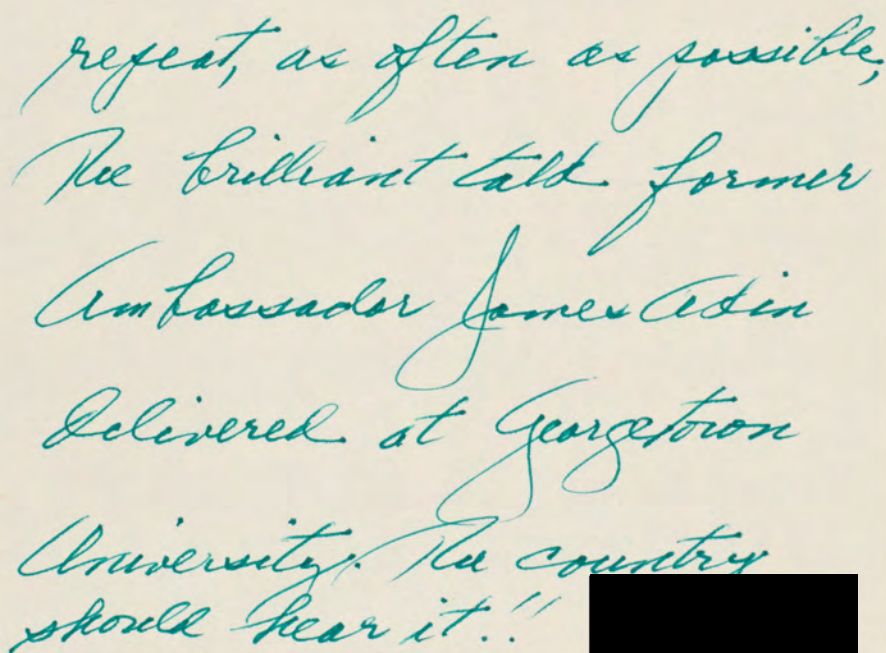 repeat, as often as possible,
The brilliant talk former
Ambassador James Akin
delivered at Georgetown
University. The country
should hear it!!